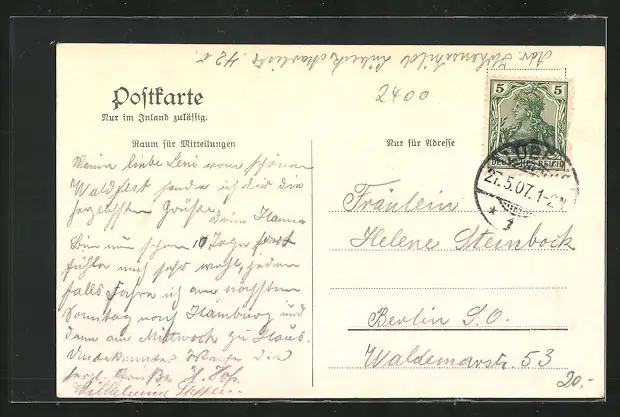 2400
Postkarte
Nur im Inland zulässig.
Raum für Mitteilungen
Nur für Adresse
5 5
DEUTSCHES REICH
27.5.07. 1-2N
* 1
Meine liebe Leni vom schönen
Waldfest sende ich dir die
herzlichsten Grüße
deine Hanna
Bin nun schon 10 Tage fort
fühle mich sehr wohl, jeden
falls fahre ich am nächsten
Sonntag nach Hamburg und
dann am Mittwoch zu Haus.
Unbekannter Weise die
herzl. Grüße H.
Wilhelmine
Fräulein
Helene Steinbock
Berlin S.O.
Waldemarstr. 53
20.-